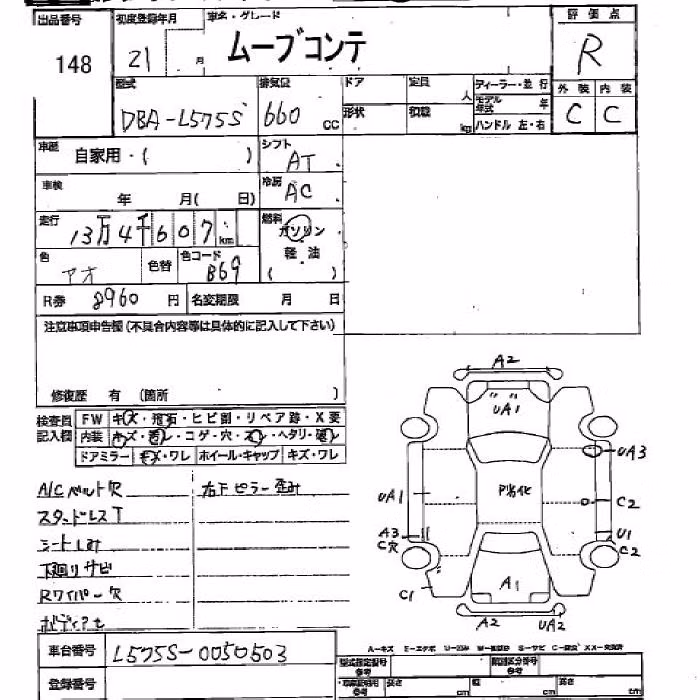 出品番号 初度登録年月 車名・グレード 評価点
148 21 月 ムーブコンテ R
型式 排気量 ドア 定員 ディーラー・並行 外装 内装
人 モデル年式 年
DBA-L575S 660 CC 形状 積載 kg ハンドル 左・右 C C
車歴 自家用・( ) シフト AT
車検 年 月( 日) 冷房 AC
走行 13万4千607km 燃料 ガソリン
軽油
色 アオ 色替 色コード B69 ( )
R券 8960 円 名変期限 月 日
注意事項申告欄(不具合内容等は具体的に記入して下さい)
修復歴 有 (箇所 )
検査員 FW キズ・飛石・ヒビ割・リペア跡・X要
記入欄 内装 キズ・汚レ・コゲ・穴・スレ・ヘタリ・破レ
ドアミラー キズ・ワレ ホイール・キャップ キズ・ワレ
A/Cベルト欠 右Fピラー歪み
スタッドレスT
シートしみ
下廻りサビ
Rワイパー欠
A2
UA1
UA3
UA1 P劣化 C2
A3 U1
C穴 C2
C1 A1
A2 UA2
車台番号 L575S-0050503
登録番号
型式指定番号 類別区分番号
長さ cm 幅 cm 高さ cm